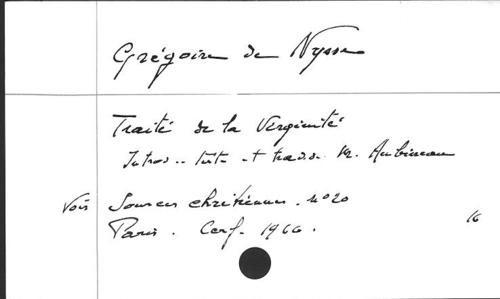 Grégoire de Nysse
Traité de la Virginité
Introd.. texte et trad. M. Aubineau
Voir Sources chrétiennes. n° 20
Paris. Cerf. 1966.
16